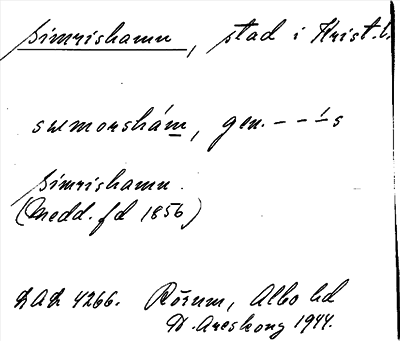 Simrishamn, stad i Krist. l.
summorshám, gen. – – ´– s
Simrishamn.
(Medd. f d 1856)
LAL 4266. Rörum, Albo hd
D. Areskoug 1944.